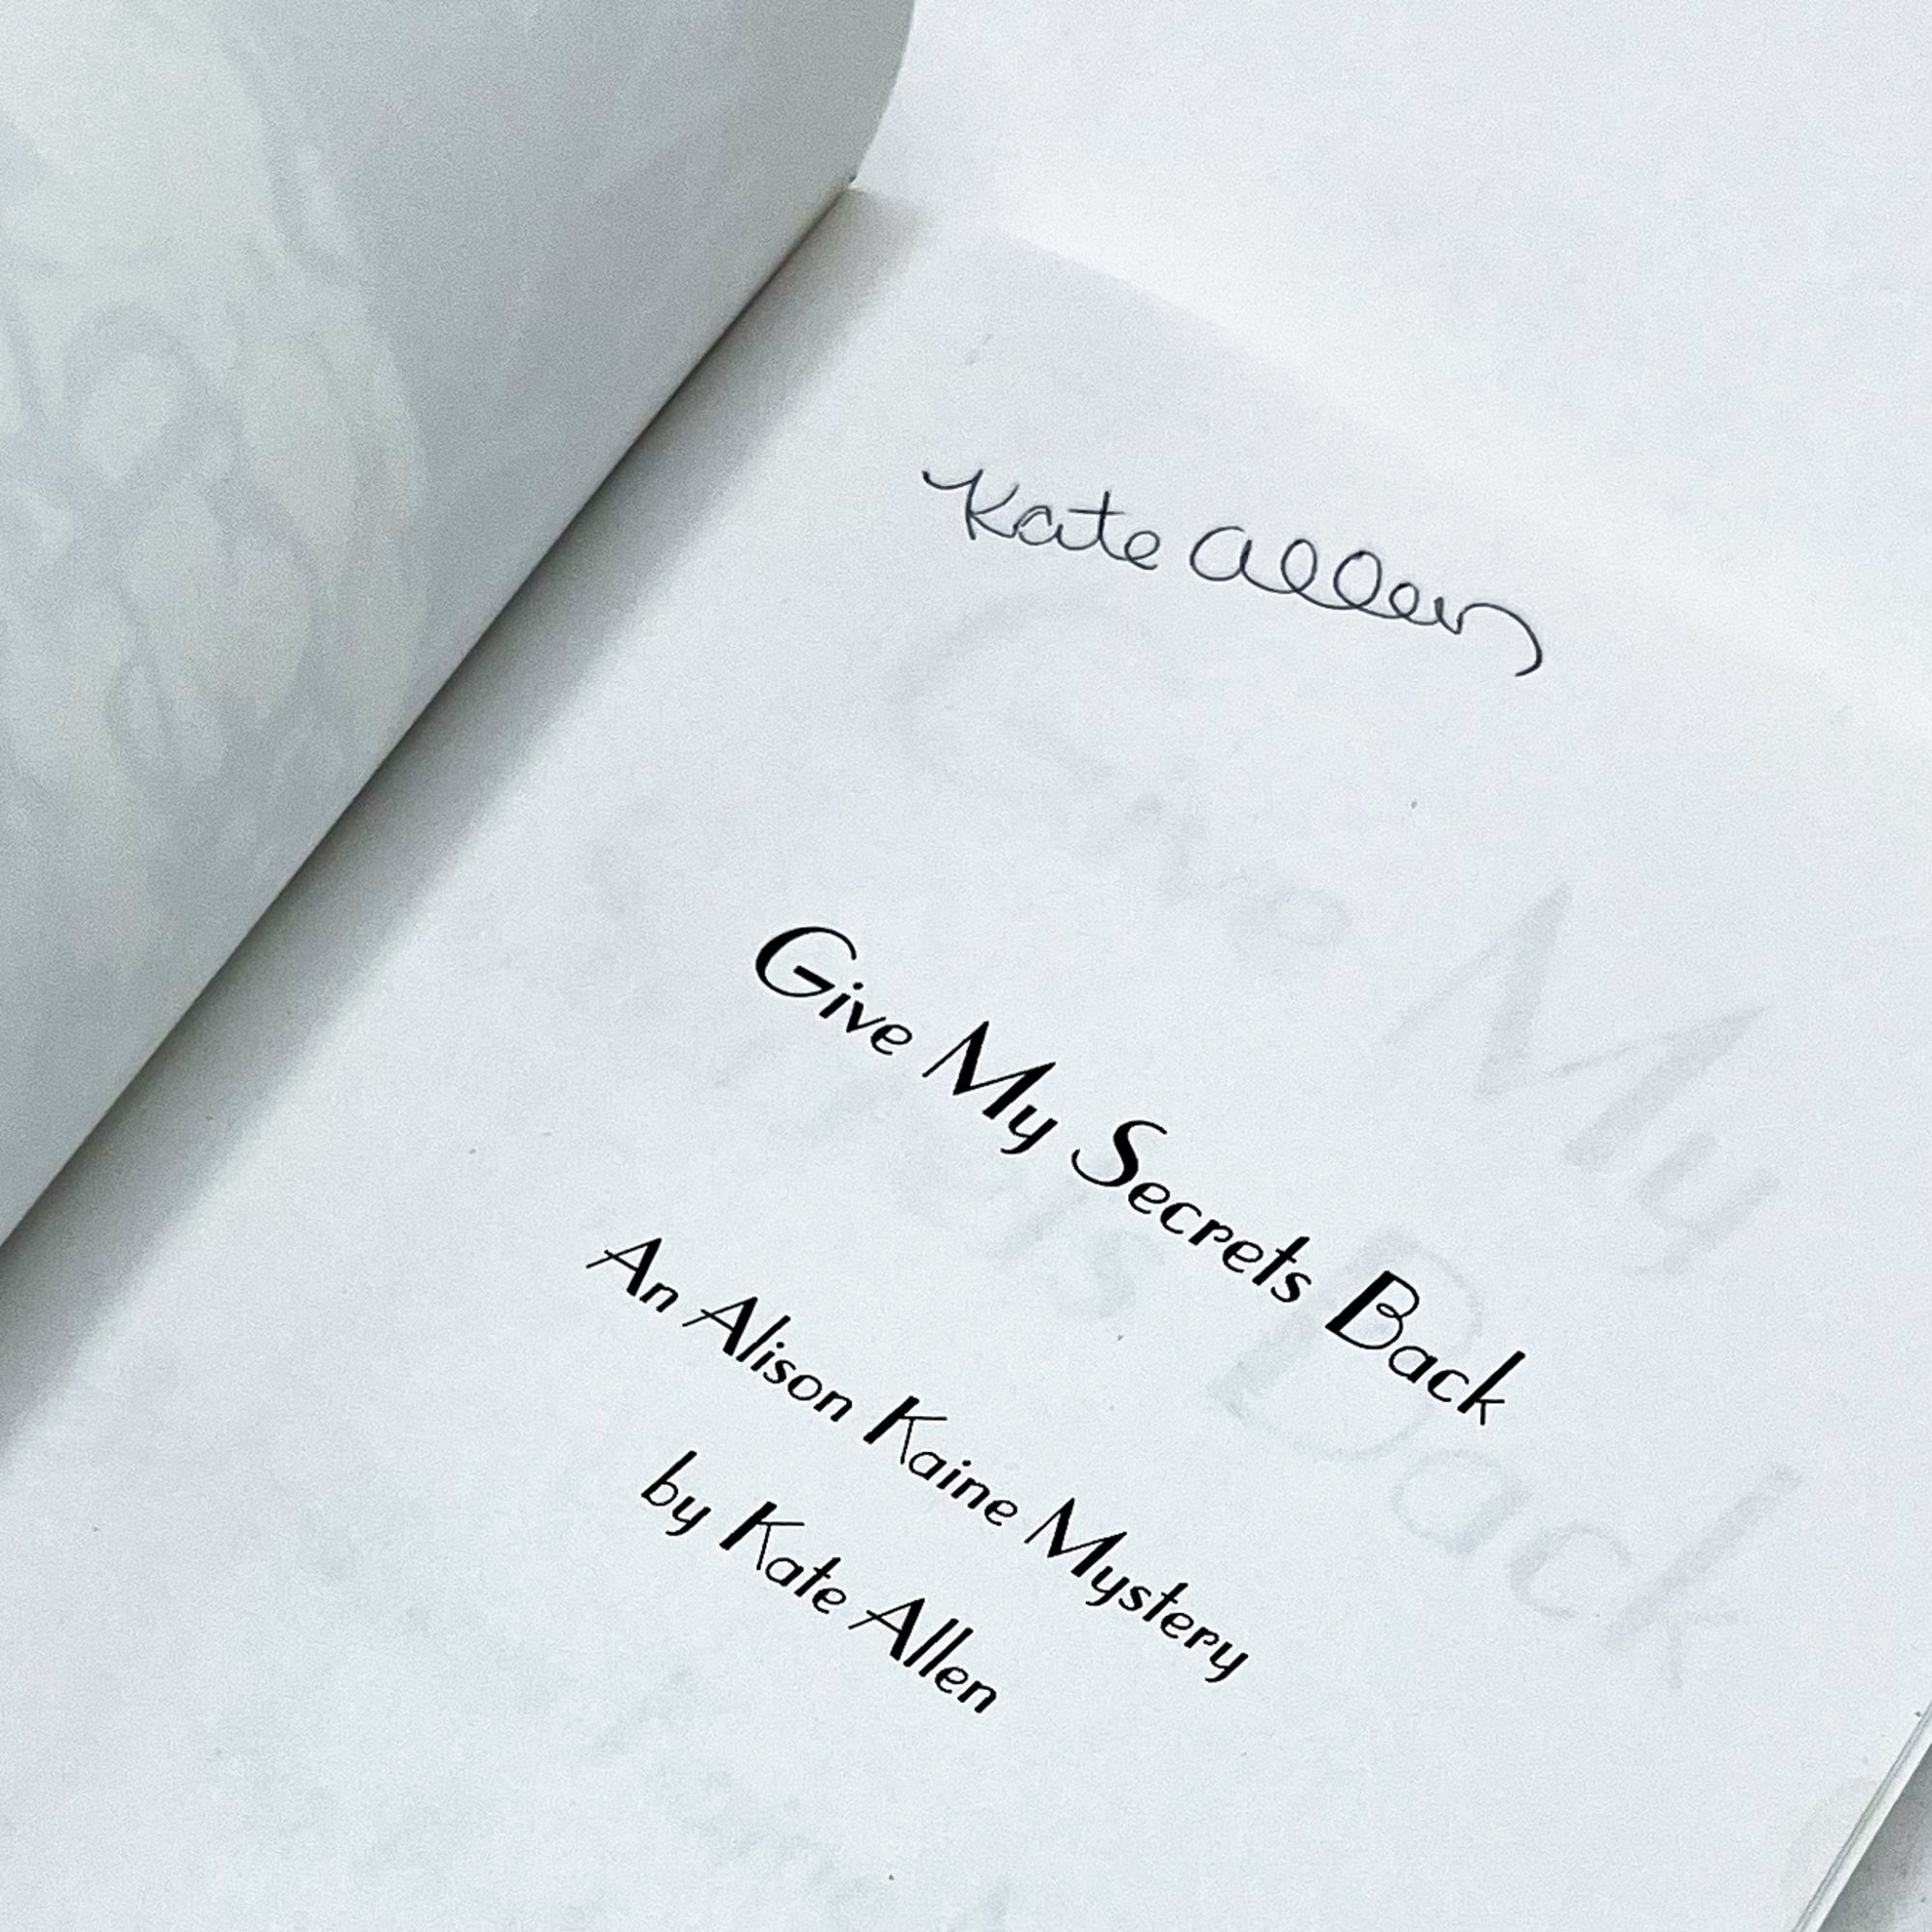 Kate Allen
Give My Secrets Back
An Alison Kaine Mystery
by Kate Allen